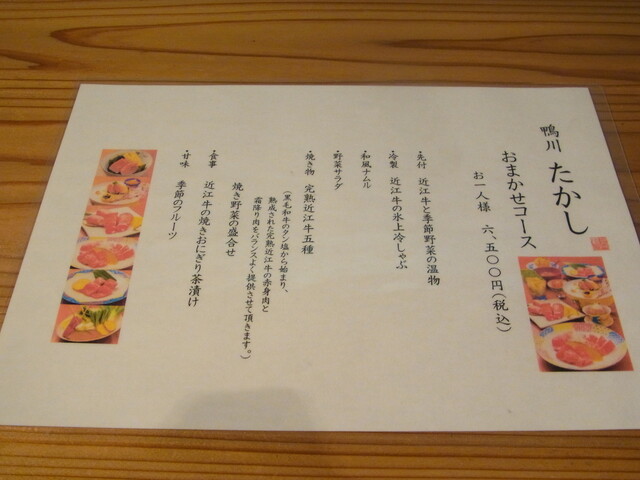 鴨川 たかし
おまかせコース
お一人様 六、五〇〇円(税込)
・先付 近江牛と季節野菜の温物
・冷製 近江牛の氷上冷しゃぶ
・和風ナムル
・野菜サラダ
・焼き物 完熟近江牛五種
(黒毛和牛のタン塩から始まり、
熟成された完熟近江牛の赤身肉と
霜降り肉をバランスよく提供させて頂きます。)
焼き野菜の盛合せ
・食事 近江牛の焼きおにぎり茶漬け
・甘味 季節のフルーツ